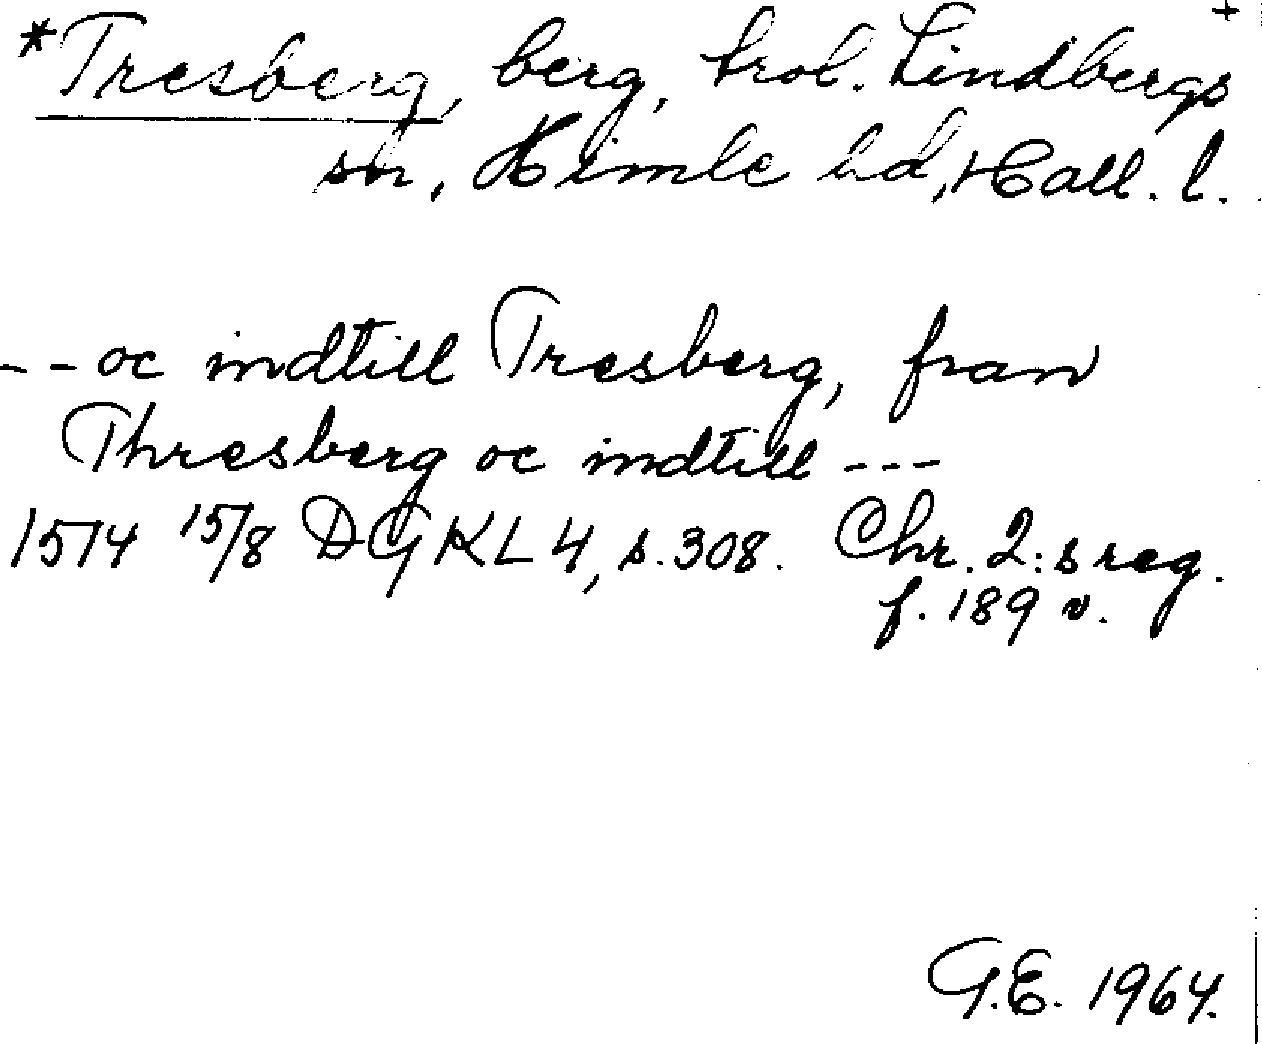 *Tresberg, berg, trol. Lindbergs +
sn, Himle hd, Hall. l.
--oc indtill Tresberg, fran
Thresberg oc indtill ---
1514 15/8 DGKL 4, s. 308. Chr. 2:s reg.
f. 189 v.
G.E. 1964.